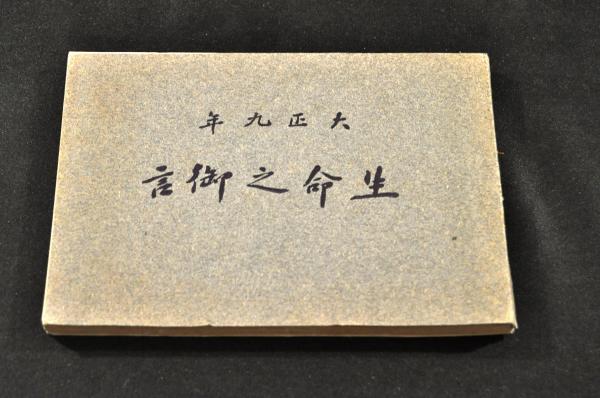 大正九年
生命之御言